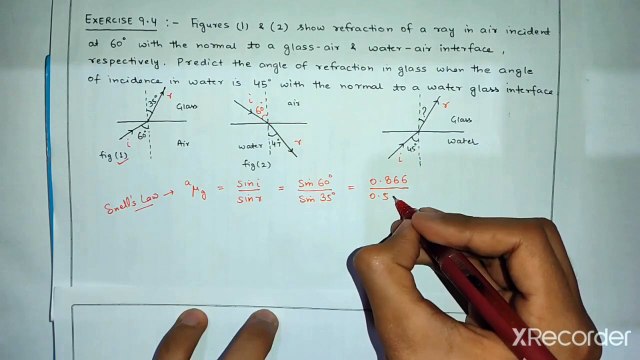 EXERCISE 9.4 :- Figures (1) & (2) show refraction of a ray in air incident
at 60° with the normal to a glass-air & water-air interface,
respectively. Predict the angle of refraction in glass when the angle
of incidence in water is 45° with the normal to a water glass interface.
35° r Glass
60° i Air
fig (1)
i 60° air
water 47° r
fig (2)
? r Glass
45° i Water
Snell's Law → aμg = sin i / sin r = sin 60° / sin 35° = 0.866 / 0.5
XRecorder